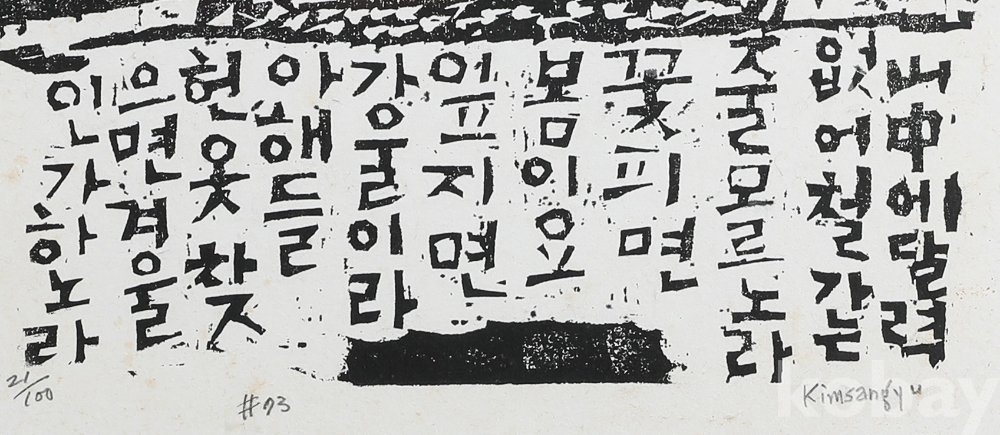 山中에달력
없어철가는
줄모르노라
꽃피면
봄이요
잎지면
가울이라
아해들
헌옷찾
으면겨울
인가하노라
21/100
#93
Kimsangyu
kobay